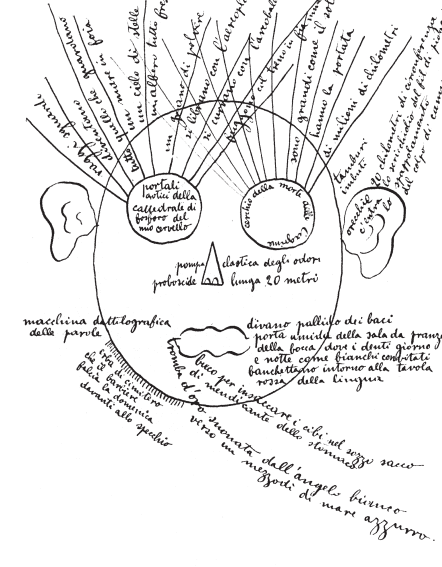 raggi sguardi
diventano
quello che guardano
tutto un mare in
un cielo di stelle
un albero tutto
un grano di polvere
si librano con l'aeroplano
si
fuggono col treno in
sono grandi come il sole
hanno la portata
di milioni di chilometri
tamburi
imbuti
orecchie
c'intro
20 chilometri di circonferenza
del filo di
del colpo di
portali
antici della
cattedrale di
fosforo del
mio cervello
cerchio della morte della
lagrima
pompa elastica degli odori
proboscide lunga 20 metri
macchina dattilografica
delle parole
divano pallido dei baci
porta umida della sala da pranzo
della bocca, dove i denti giorno
e notte come bianchi convitati
banchettano intorno alla tavola
rossa della lingua
erba di cimitero
che il barbiere
falcia la domenica
davanti allo specchio
buco per insaccare i cibi nel sozzo sacco
di mendicante dello stomaco
tromba d'oro suonata dall'angelo bianco
verso un mezzodì di mare azzurro.